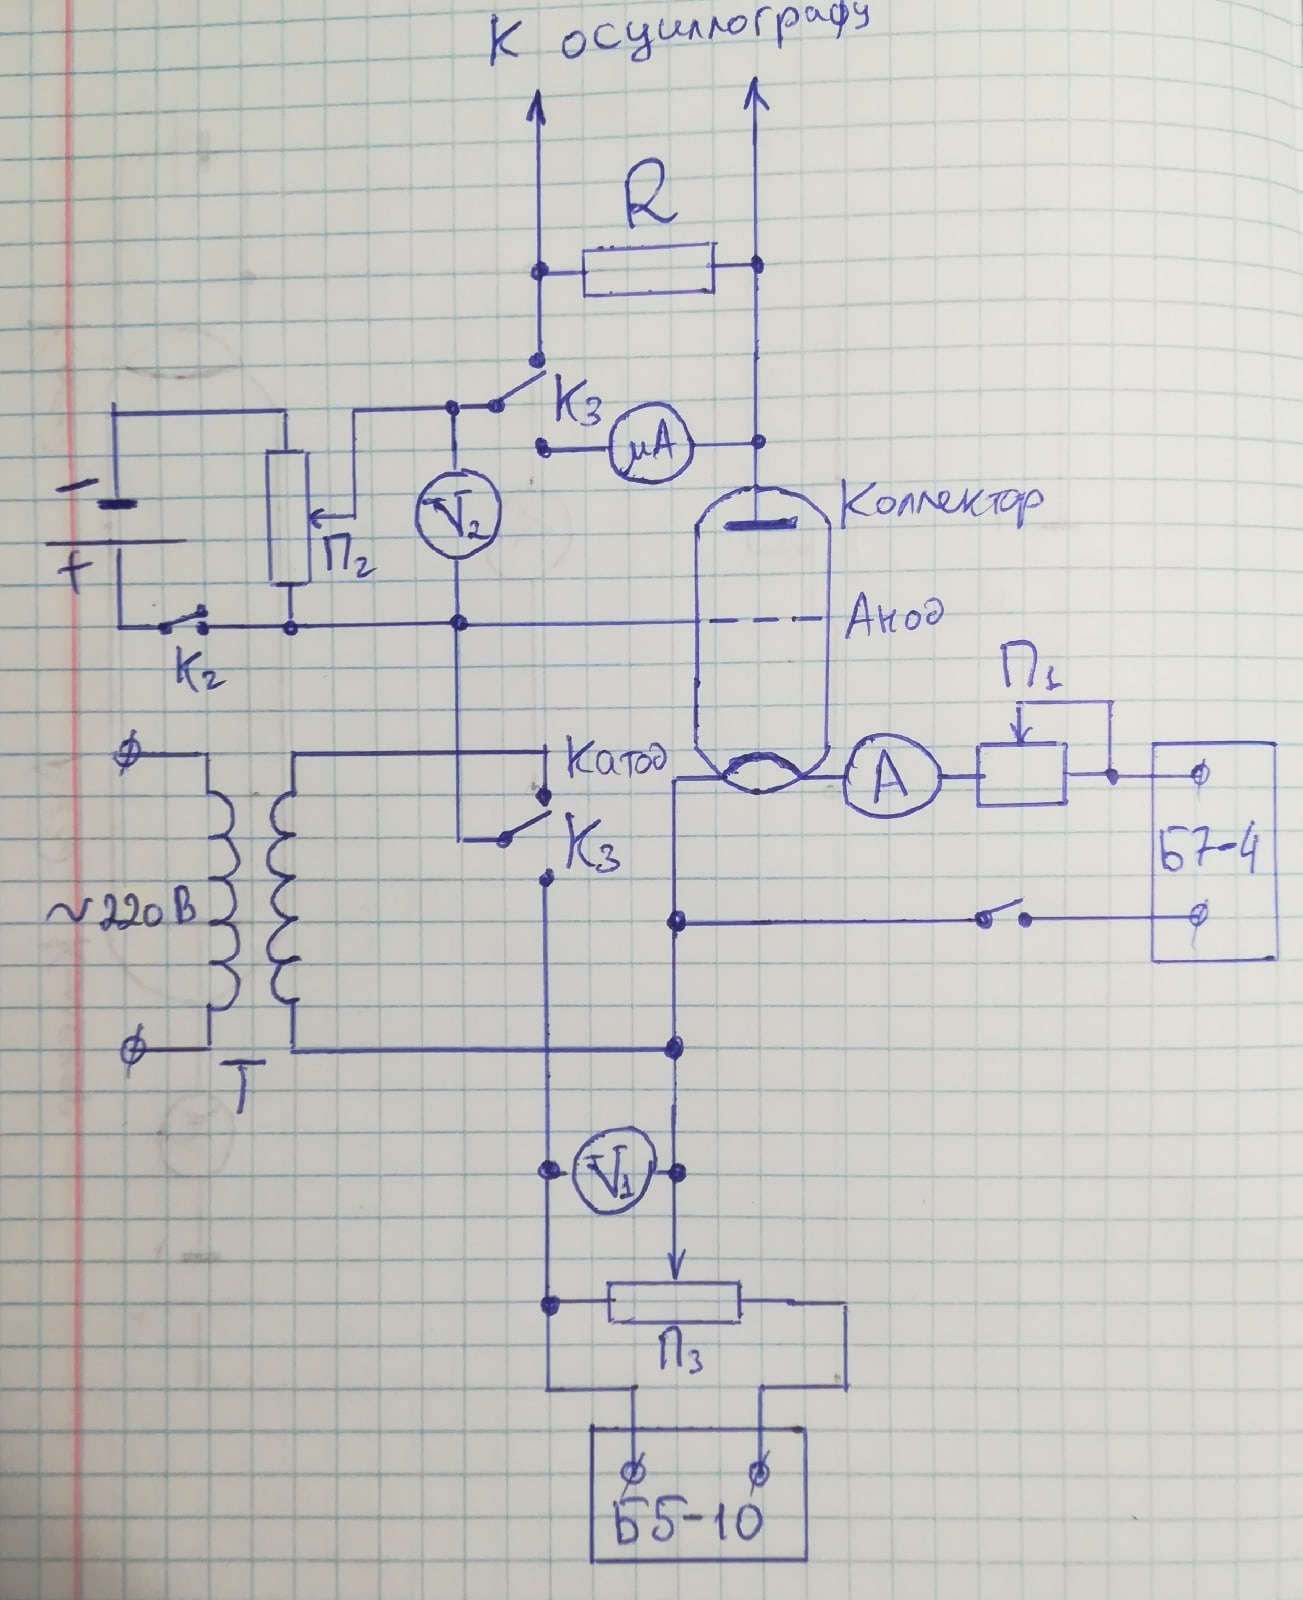 К осциллографу
R
К3
μА
Коллектор
−
+
П2
V2
К2
Анод
П1
Катод
А
К3
Б7-4
~220В
Т
V1
П3
Б5-10